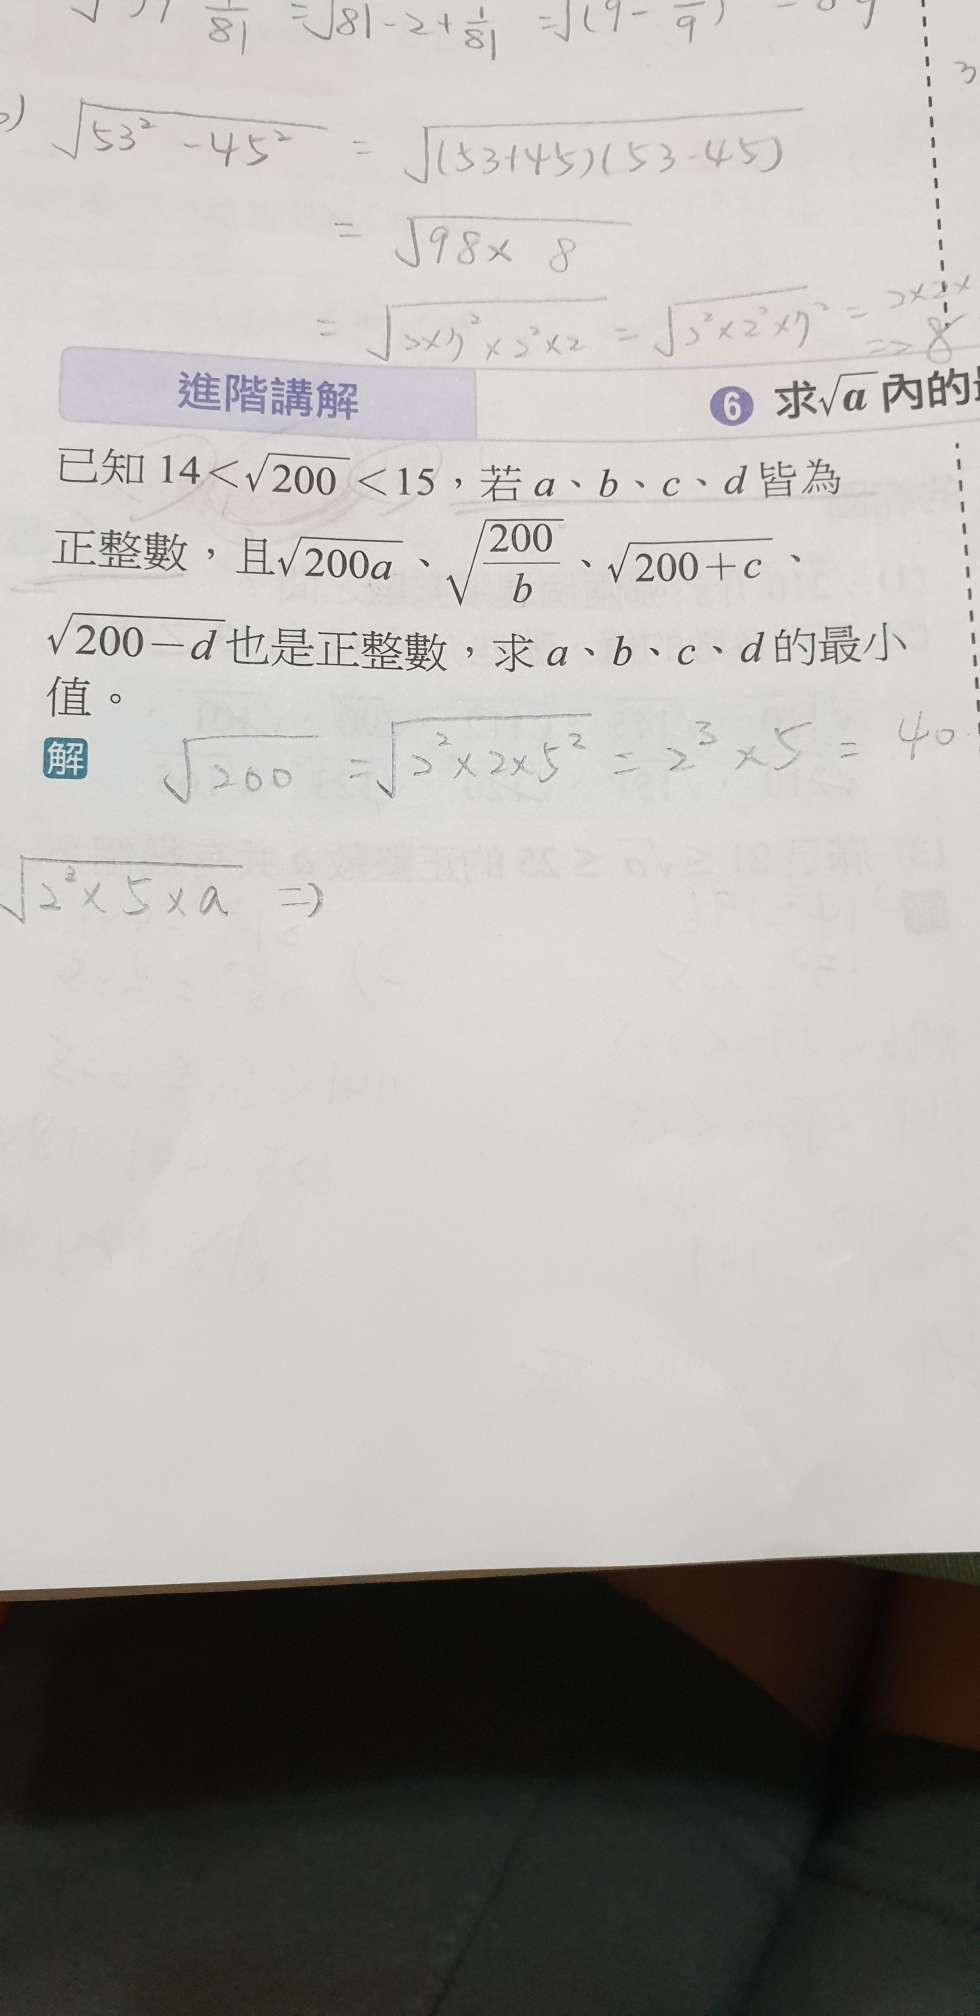 81 = √81-2+1/81 = √(9-
√53²-45² = √(53+45)(53-45)
= √98× 8
= √2×7²×2²×2 = √2²×2²×7² = 2×2×
=> 8
進階講解 ❻ 求√a 內的
已知 14<√200<15,若 a、b、c、d 皆為
正整數,且√200a、√200/b、√200+c、
√200-d也是正整數,求 a、b、c、d 的最小
值。
解 √200 = √2²×2×5² = 2³×5 = 40
√2³×5×a =>